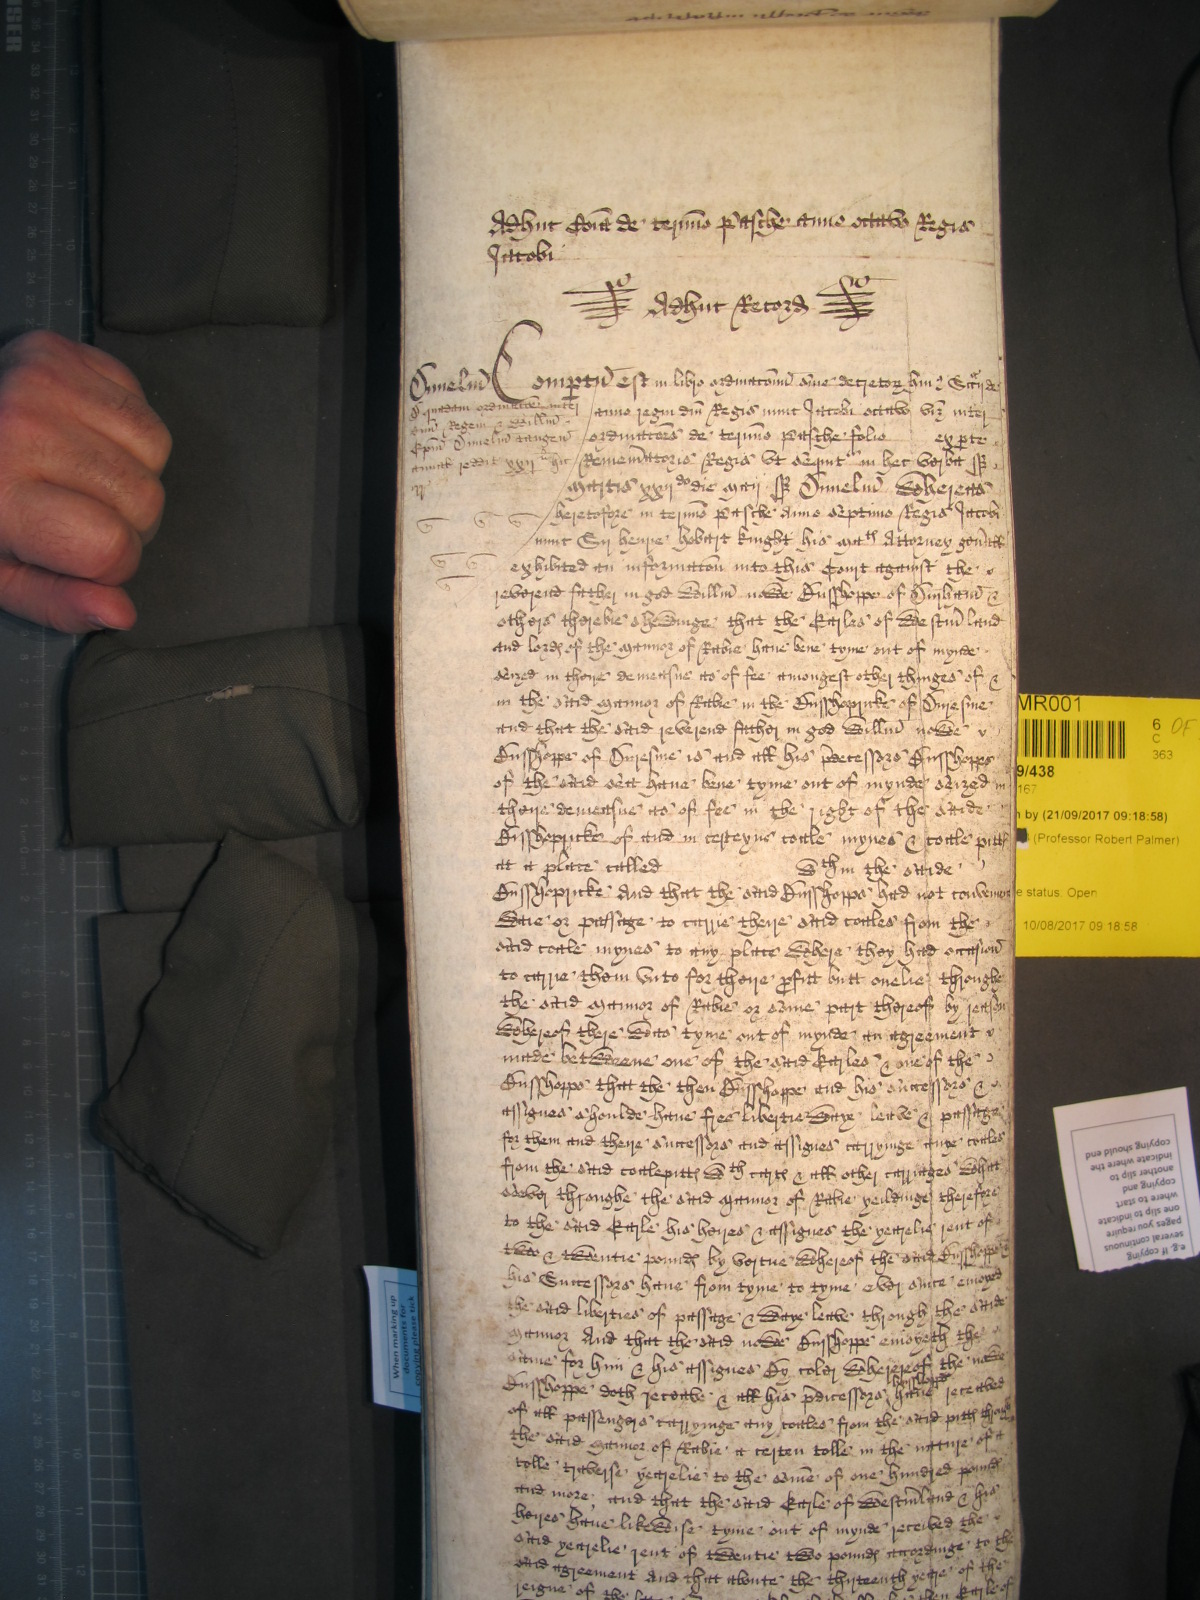 Adhuc Coia de termino Pasche anno octavo Regis
Jacobi
Adhuc Record
Dunelm
Compertu est in libro ordinationu sive decretor hui Sccij de
anno regni dni Regis nunc Jacobi octavo viz inter
ordinationes de termino Pasche folio ex pte
Rememoratoris Regis vt sequit in hec verba
Martis xxij do die Maij Dunelm Whereas
heretofore in termino Pasche Anno septimo Regis Jacobi
nunc Sir Henrie Hobart knight his Mats Attorney genall
exhibited an informacon into this Court against the
reverend father in god Willm nowe Busshoppe of Durham &
others therebie shewinge that the Earles of Westmland
and lords of the Mannor of Rabie have bene tyme out of mynde
seized in there demeasne as of fee amongest other thinges of &
in the said Mannor of Rabie in the Busshopricke of Duresme
and that the said reverend father in god Willm nowe
Busshoppe of Duresme is and all his pdecessors Busshopps
of the said sea have bene tyme out of mynde seized in
there demeasne as of fee in the right of the saide
Busshopricke of and in certeyne coale mynes & coale pitts
at a place called wth in the saide
Busshopricke And that the said Busshopps had not convenient
waie or passage to carrie there said coales from the
said coale mynes to any place where they had occasion
to carrie them unto for there pfitt butt onelie throughe
the said Mannor of Rabie or some part thereof by reason
whereof there was tyme out of mynde an agreement
made betweene one of the said Earles & one of the
Busshopps that the then Busshoppe and his successors &
assignes shoulde have free libertie waye leave & passage
for them and there successors and assignes carryinge anye coales
from the said coalepitts wth carts & all other carriages what
soever throughe the said Mannor of Rabie yeildinge therefore
to the said Earle his heires & assignes the yearelie rent of
two & twentie pounds by vertue whereof the said Busshoppe &
his Successors have from tyme to tyme ever since enioyed
the said liberties of passage & waye leave through the saide
Mannor And that the said nowe Busshoppe enioyeth the
same for him & his assignes By color whereof the nowe
Busshoppe doth receave & all his pdicessors Bisshopps have receaved
of all passengers carryinge any coales from the said pitts through
the said Mannor of Rabie a certen tolle in the nature of a
tolle traverse yearelie to the some of one hundred pounds
and more and that the said Earle of Westmland & his
heires have likewise tyme out of mynde received the
said yearelie rent of twentie two pounds accordinge to the
said agreement And that aboute the thirteenth yeare of the
reigne of the late then Earle of
MR001
6
C
363
9/438
167
n by (21/09/2017 09:18:58)
(Professor Robert Palmer)
e status: Open
10/08/2017 09:18:58
e.g. If copying
several continuous
pages you require
one slip to indicate
where to start
copying and
another slip to
indicate where the
copying should end
When marking up
documents for
copying please tick